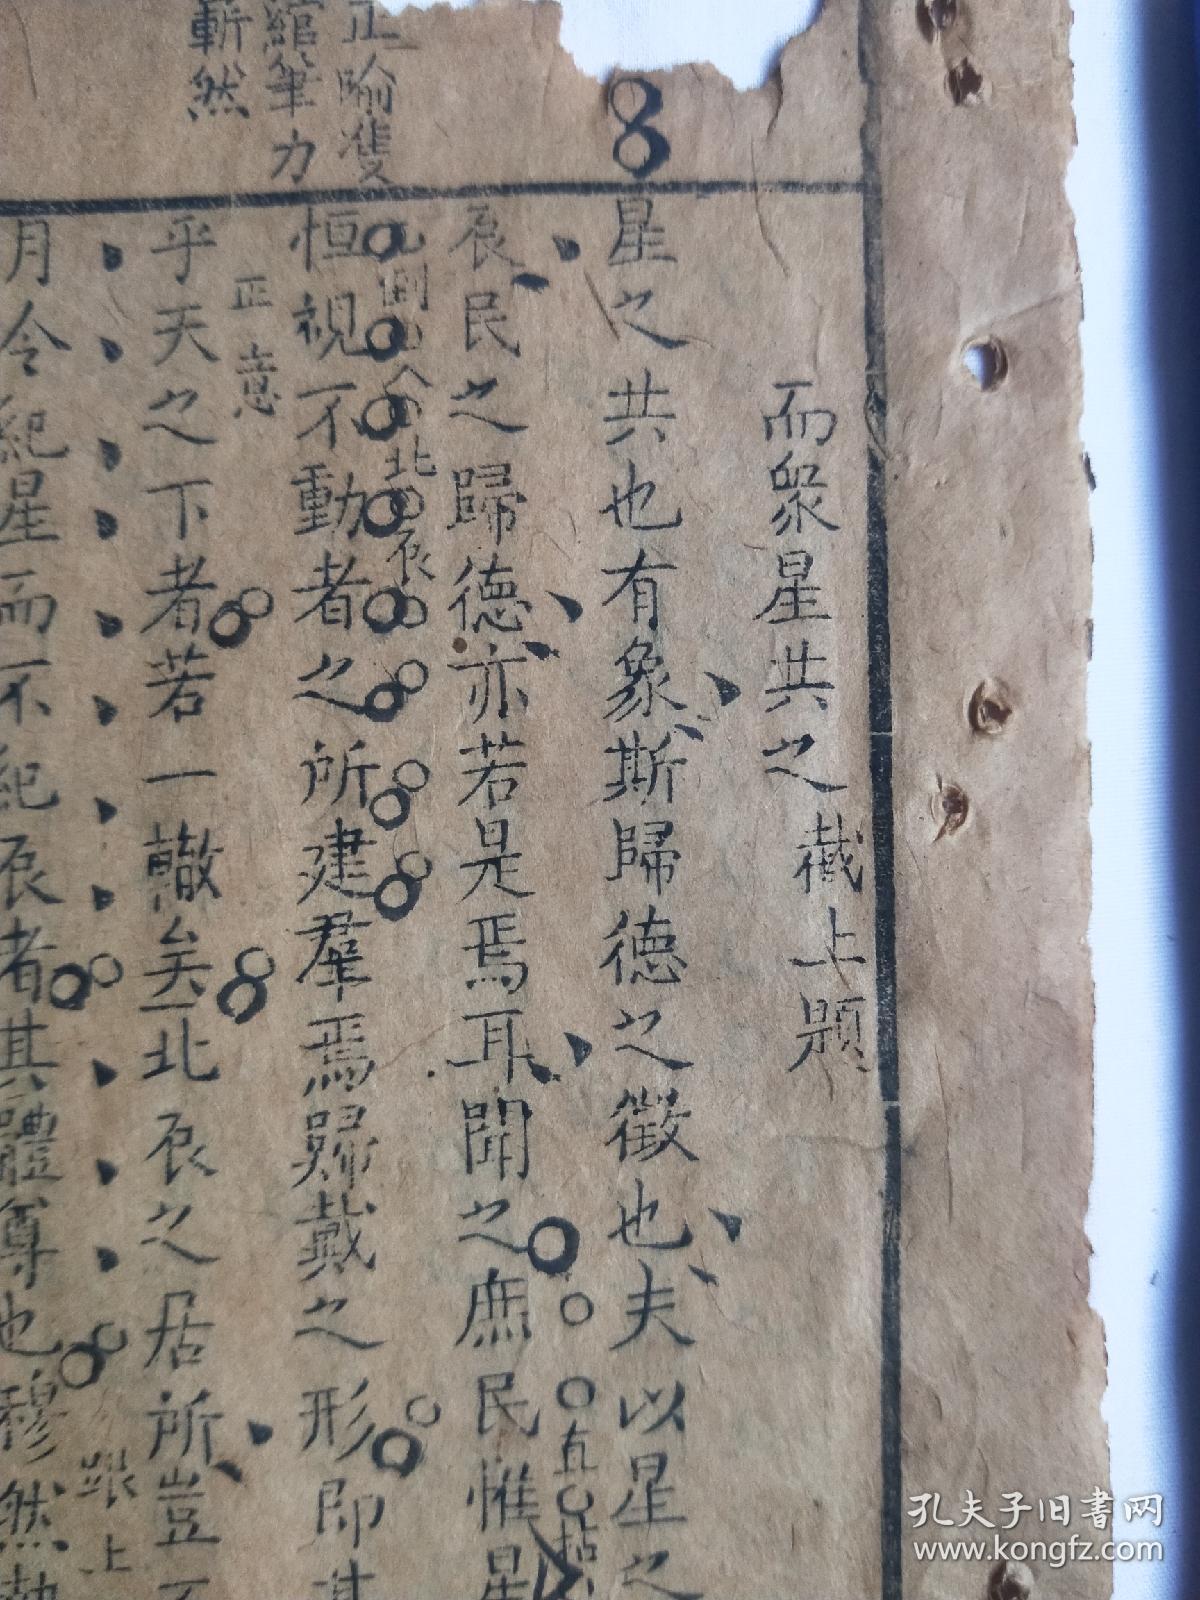 而衆星共之 截上題
星之共也有象斯歸德之徵也夫以星之
辰民之歸德亦若是焉耳聞之庶民惟星
恒視不動者之所建羣焉歸戴之形即其
乎天之下者若一轍矣北辰之居所豈不
月令紀星而不紀辰者其體尊也穆然
正喻雙
綰筆力
斬然
正意
跟上
孔夫子旧书网
www.kongfz.com